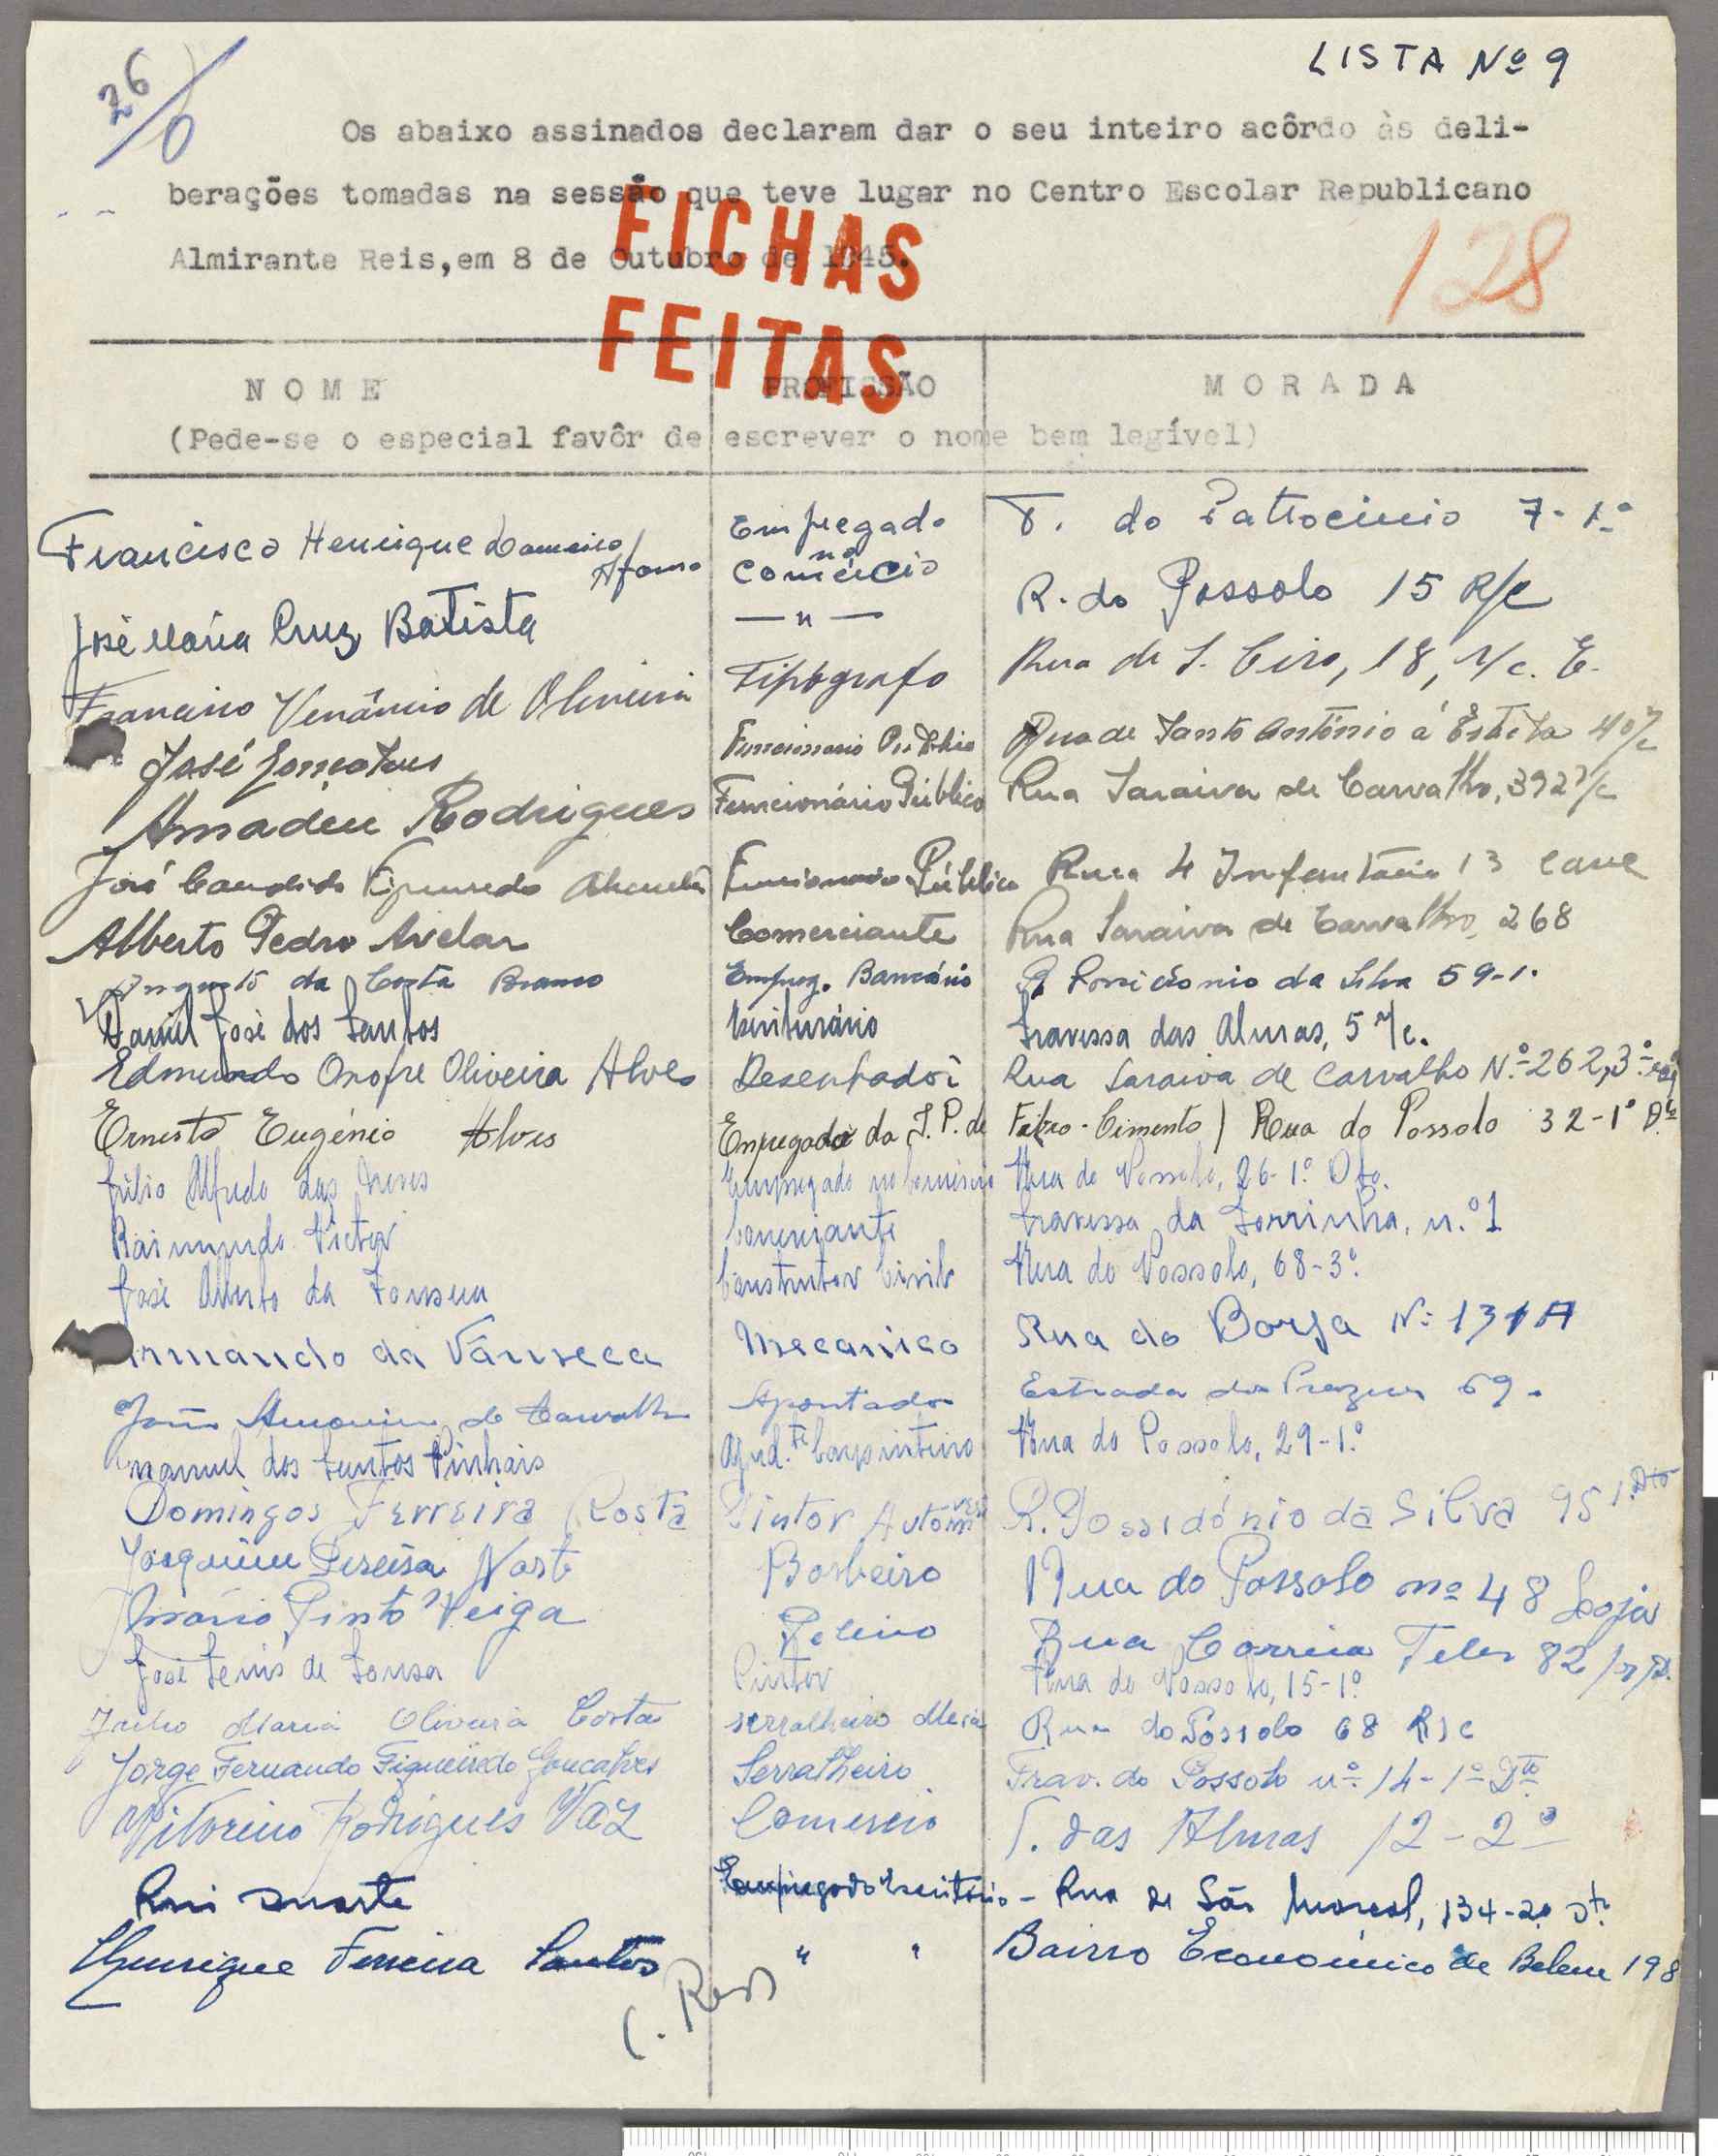 LISTA Nº 9
26/0
Os abaixo assinados declaram dar o seu inteiro acôrdo às deli-
berações tomadas na sessão que teve lugar no Centro Escolar Republicano
Almirante Reis, em 8 de Outubro de 1945.
FICHAS
FEITAS
128
NOME PROFISSÃO MORADA
(Pede-se o especial favôr de escrever o nome bem legível)
Francisco Henrique Lameira Afonso Empregado no Comércio T. do Patrocinio 7-1º
José Maria Cruz Batista —"— R. do Possolo 15 R/c
Francisco Venâncio de Oliveira Tipógrafo Rua de S. Ciro, 18, r/c. E.
José Gonçalves Funcionario Publico Rua de Santo António á Estrela
Amadeu Rodrigues Funcionário Público Rua Saraiva de Carvalho, 392 r/c
José Candido Figueiredo Funcionario Público Rua 4 Infantaria 13 cave
Alberto Pedro Avelar Comerciante Rua Saraiva de Carvalho, 268
Augusto da Costa Branco Empreg. Bancário R. Possidonio da Silva 59-1.
Daniel José dos Santos Escriturário Travessa das Almas, 5 r/c.
Edmundo Onofre Oliveira Alves Desenhador Rua Saraiva de Carvalho N.º 262, 3.º esq
Ernesto Eugénio Alves Empregado da F. P. de Fibro-Cimento) Rua do Possolo 32-1º D.to
Júlio Alfredo das Neves Empregado no Comércio Rua do Possolo, 26-1.º Dto.
Raimundo Victor Comerciante Travessa da Torrinha, n.º 1
José Alberto da Fonseca Construtor Civil Rua do Possolo, 68-3.º
Armando da Fanseca Mecanico Rua do Borja Nº 131A
João de Carvalho Apontador Estrada dos Prazeres 69.
Manuel dos Santos Pinhais Ajud.te Carpinteiro Rua do Possolo, 29-1.º
Domingos Ferreira Rosta Pintor Automveis R. Possidónio da Silva 95 1.Dto
Joaquim Pereira Norte Barbeiro Rua do Possolo nº 48 Loja
Mário Pinto Veiga Rua Correia Teles 82
José Lenis de Sousa Pintor Rua do Possolo, 15-1º
Julio Maria Oliveira Costa serralheiro Meca Rua do Possolo 68 R/c
Jorge Fernando Figueiredo Gonçalves Serralheiro Trav. do Possolo nº 14-1º Dto
Vitorino Rodrigues Vaz Comercio T. das Almas 12-2º
Rui Duarte Empregado Escritório - Rua de São Marçal, 134-2º Dt.
Henrique Ferreira Santos " " Bairro Económico de Belem 198